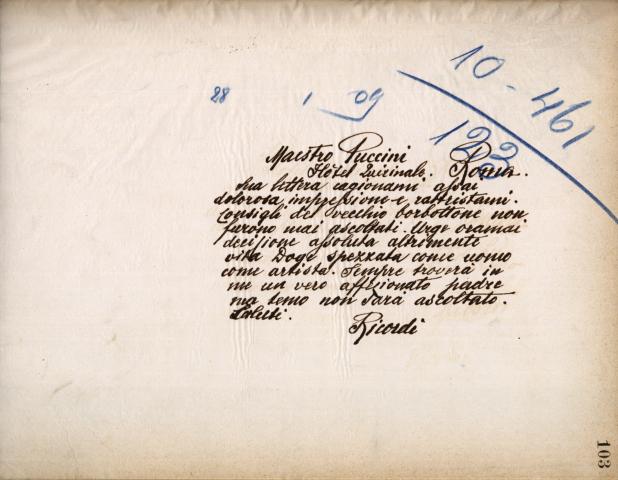 10-461
28 1 09
123
Maestro Puccini
Hôtel Quirinale. Roma.
Sua lettera cagionami assai
dolorosa impressione e rattristami.
Consigli del vecchio borbottone non
furono mai ascoltati. Urge oramai
decisione assoluta altrimenti
vita Doge spezzata come uomo
come artista. Sempre troverà in
me un vero affezionato padre
ma temo non sarà ascoltato.
Saluti.
Ricordi
103